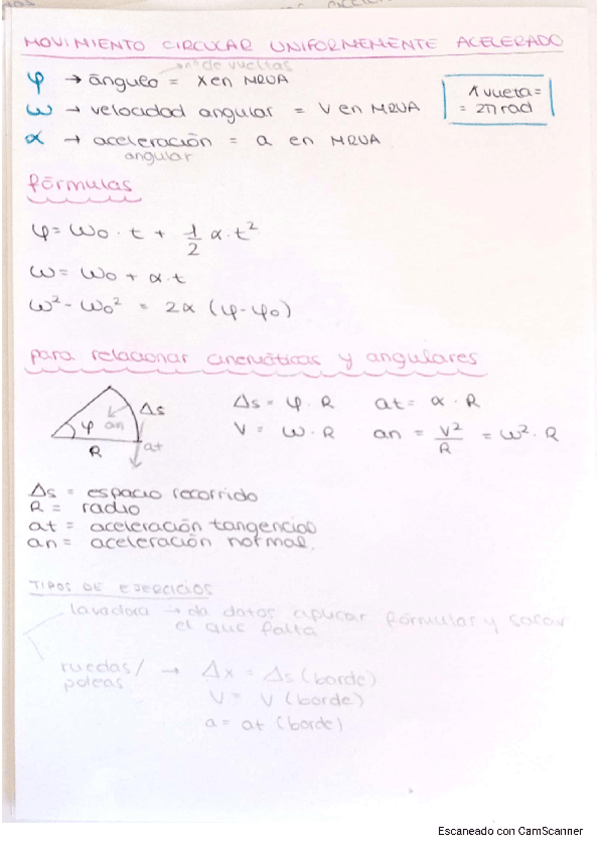 MOVIMIENTO CIRCULAR UNIFORMEMENTE ACELERADO
nº de vueltas
φ → ángulo = x en MRUA
ω → velocidad angular = v en MRUA
α → aceleración = a en MRUA
angular
1 vuelta =
= 2π rad
fórmulas
φ = ω₀ · t + 1/2 α · t²
ω = ω₀ + α · t
ω² - ω₀² = 2α (φ - φ₀)
para relacionar cinemáticas y angulares
φ an Δs
R at
Δs = φ · R at = α · R
V = ω · R an = V²/R = ω² · R
Δs = espacio recorrido
R = radio
at = aceleración tangencial
an = aceleración normal.
TIPOS DE EJERCICIOS
lavadora → da datos aplicar fórmulas y sacar
el que falta
ruedas/ → Δx = Δs (borde)
poleas
V = V (borde)
a = at (borde)
Escaneado con CamScanner